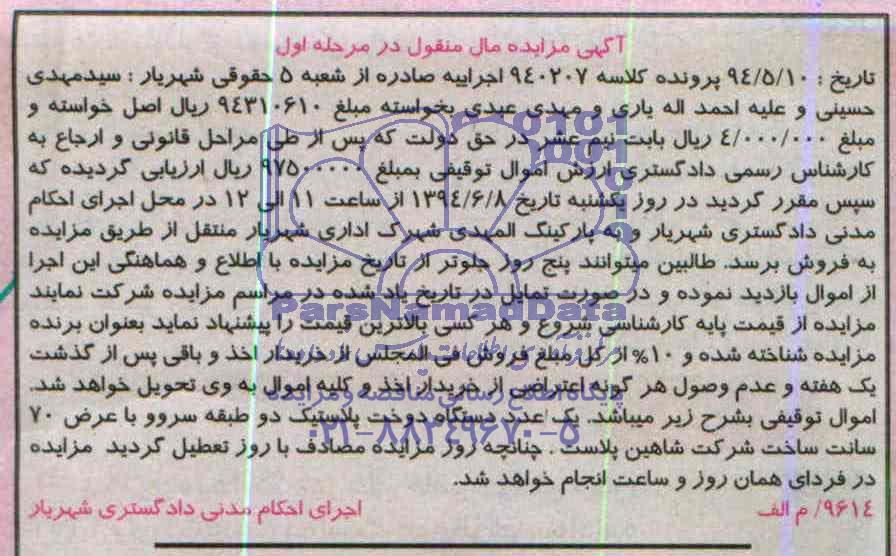 آگهی مزایده مال منقول در مرحله اول
تاریخ : ۹۴/۵/۱۰ پرونده کلاسه ۹۴۰۲۰۷ اجراییه صادره از شعبه ۵ حقوقی شهریار : سیدمهدی
حسینی و علیه احمد اله یاری و مهدی عبدی بخواسته مبلغ ۹۴۳۱۰۶۱۰ ریال اصل خواسته و
مبلغ ۴/۰۰۰/۰۰۰ ریال بابت نیم عشر در حق دولت که پس از طی مراحل قانونی و ارجاع به
کارشناس رسمی دادگستری ارزش اموال توقیفی بمبلغ ۹۷۵۰۰۰۰۰ ریال ارزیابی گردیده که
سپس مقرر گردید در روز یکشنبه تاریخ ۱۳۹۴/۶/۸ از ساعت ۱۱ الی ۱۲ در محل اجرای احکام
مدنی دادگستری شهریار و به پارکینگ المهدی شهرک اداری شهریار منتقل از طریق مزایده
به فروش برسد. طالبین میتوانند پنج روز جلوتر از تاریخ مزایده با اطلاع و هماهنگی این اجرا
از اموال بازدید نموده و در صورت تمایل در تاریخ یاد شده در مراسم مزایده شرکت نمایند
ParsNamadData
مزایده از قیمت پایه کارشناسی شروع و هر کسی بالاترین قیمت را پیشنهاد نماید بعنوان برنده
مزایده شناخته شده و ۱۰% از کل مبلغ فروش فی المجلس از خریدار اخذ و باقی پس از گذشت
یک هفته و عدم وصول هر گونه اعتراضی از خریدار اخذ و کلیه اموال به وی تحویل خواهد شد.
پایگاه اطلاع رسانی مناقصه و مزایده
اموال توقیفی بشرح زیر میباشد. یک عدد دستگاه دوخت پلاستیک دو طبقه سروو با عرض ۷۰
۰۲۱-۸۸۳۴۹۶۷۰-۵
سانت ساخت شرکت شاهین پلاست . چنانچه روز مزایده مصادف با روز تعطیل گردید مزایده
در فردای همان روز و ساعت انجام خواهد شد.
۹۶۱۴/ م الف
اجرای احکام مدنی دادگستری شهریار